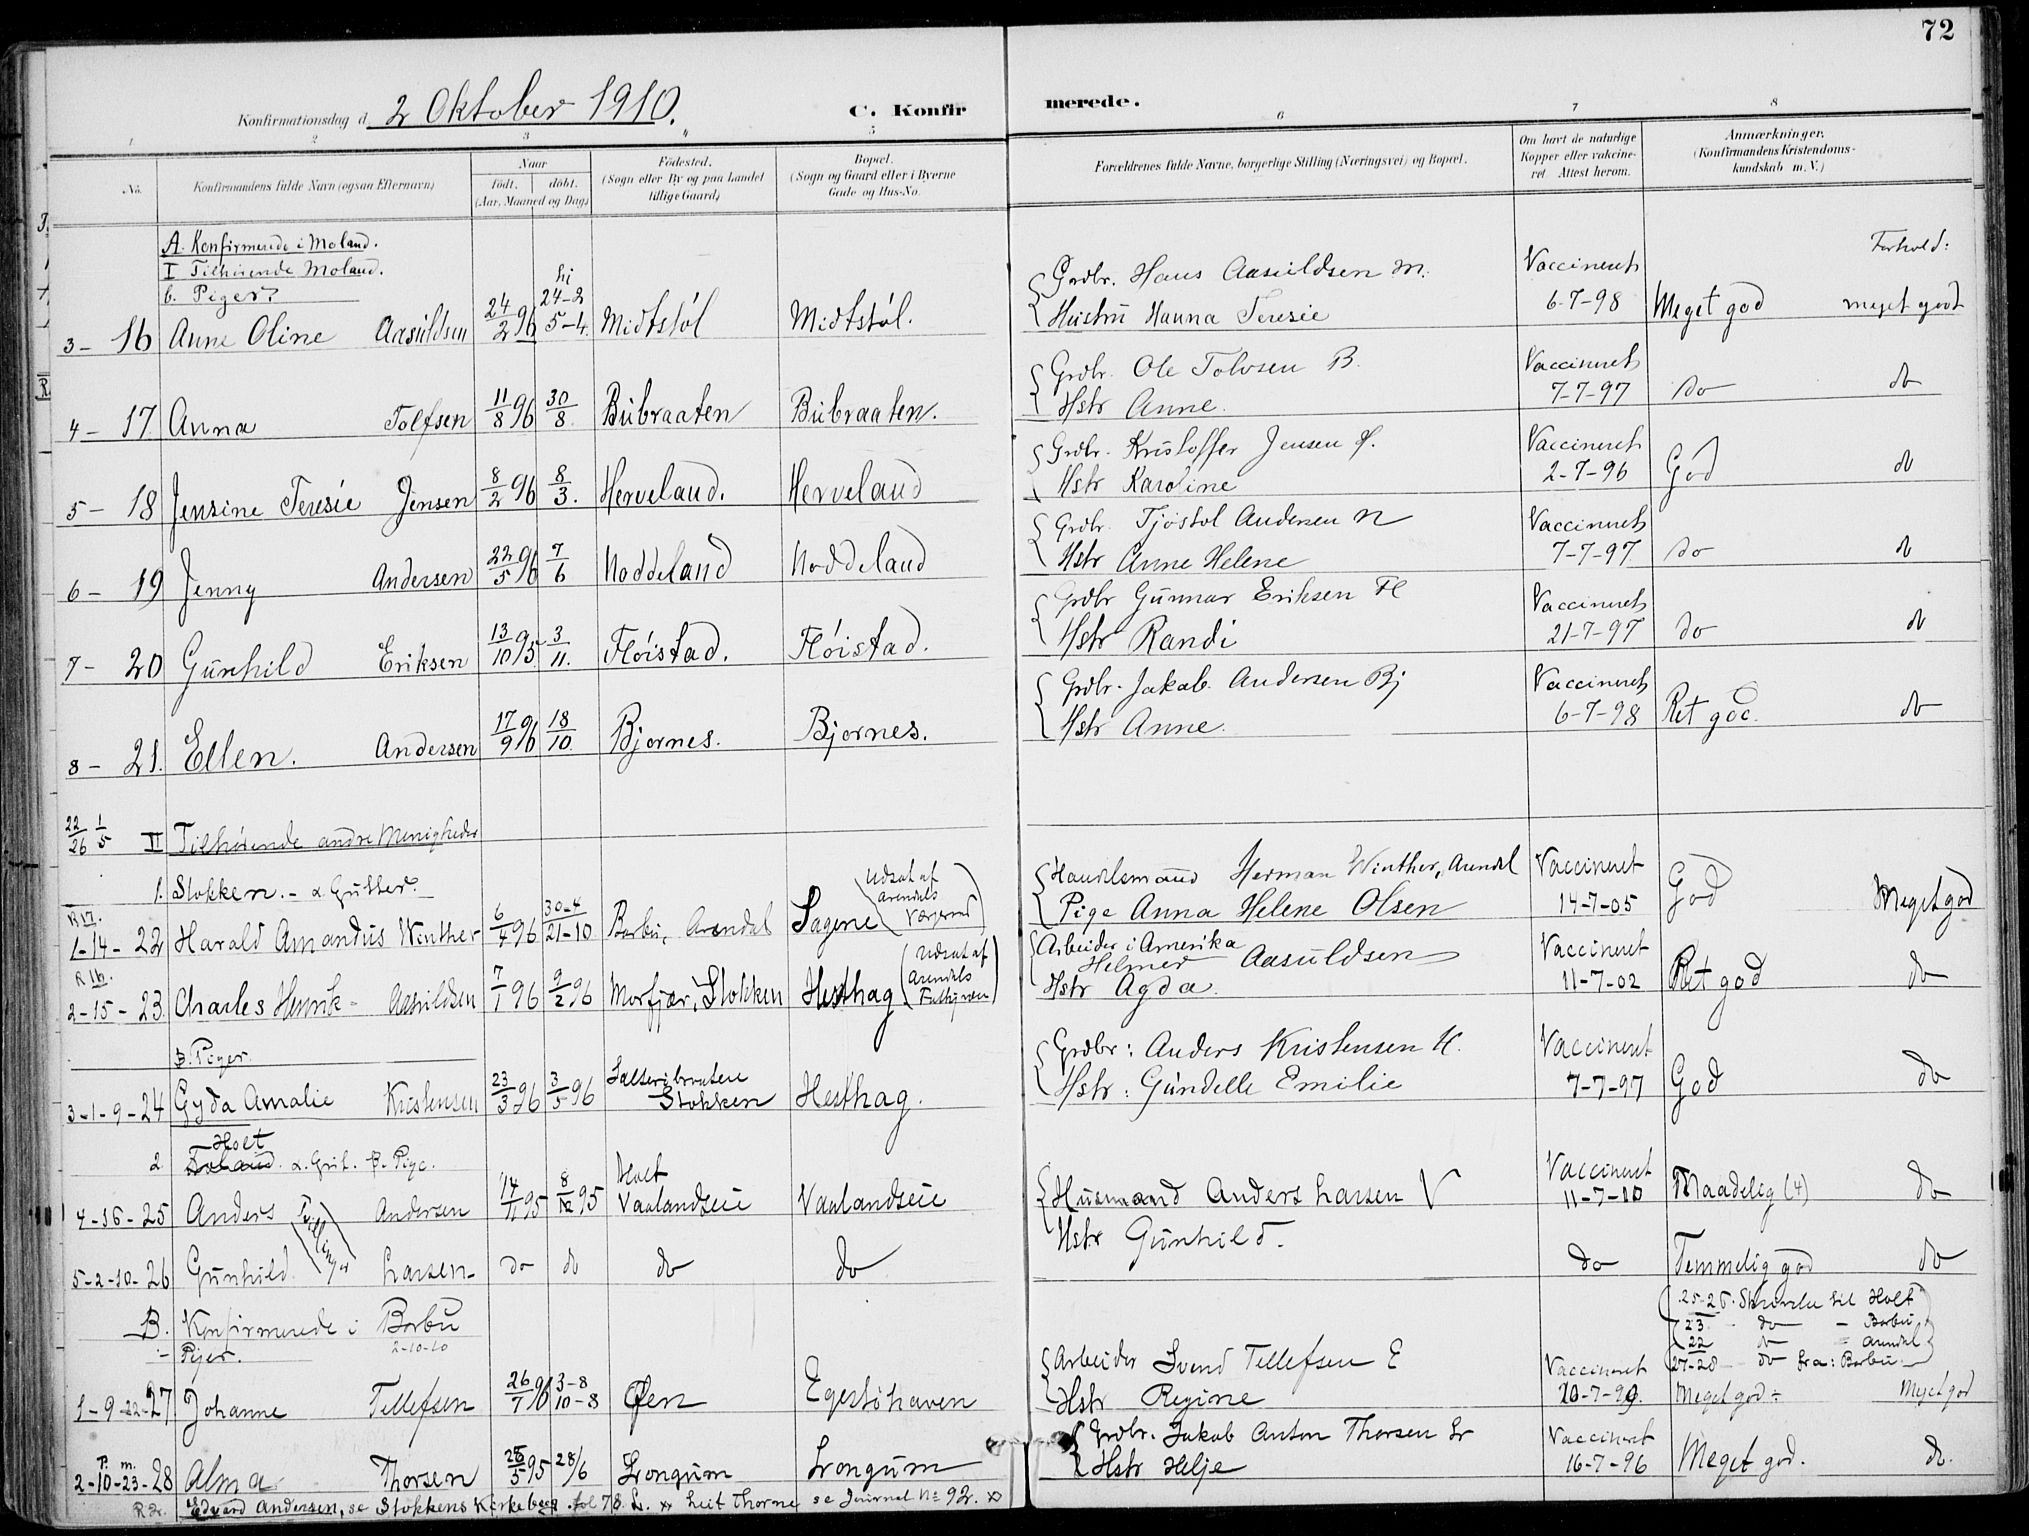 72
Konfirmationsdag d. 2 Oktober 1910. C. Konfirmerede.
1 2 3 5 6 7 8
No. Konfirmandens fulde Navn (ogsaa Efternavn) Naar født. døbt. (Aar, Maaned og Dag.) Fødested. (Sogn eller By og paa Landet tillige Gaard) Bopæl. (Sogn og Gaard eller i Byerne Gade og Hus-No. Forældrenes fulde Navne, borgerlige Stilling (Næringsvei) og Bopæl. Om havt de naturlige Kopper eller vakcineret. Attest herom. Anmærkninger. (Konfirmandens Kristendomskundskab m. V.)
A. Konfirmerede i Moland.
I Tilhørende Moland.
b. Piger.
Forhold:
3 - 16 Anne Oline Aasuldsen 24/2 96 hj 24-2 5-4. Midtstøl Midtstøl. Grdbr. Hans Aasuldsen M. Hustru Hanna Teresie Vaccineret 6-7-98 Meget god meget godt
4 - 17 Anna Tolfsen 11/8 96 30/8. Bubraaten Bubraaten. Grdbr. Ole Tolvsen B. Hstr Anne. Vaccineret 7-7-97 do do
5 - 18 Jensine Teresie Jensen 8/2 96 8/3. Herveland. Herveland Grdbr. Kristoffer Jensen H. Hstr Karoline Vaccineret 2-7-96 God do
6 - 19 Jenny Andersen 22/5 96 7/6 Noddeland Noddeland Grdbr. Tjøstol Andersen N Hstr Anne Helene Vaccineret 7-7-97 do do
7 - 20 Gunhild Eriksen 13/10 95 3/11. Fløistad. Fløistad. Grdbr Gunnar Eriksen Fl Hstr Randi Vaccineret 21-7-97 do do
8 - 21. Ellen. Andersen 17/9 96 18/10. Bjornes. Bjornes. Grdbr. Jakob Andersen Bj Hstr Anne. Vaccineret 6-7-98 Ret god. do
22/26 1/5 II Tilhørende andre Menigheder
1. Stokken. - α Gutter.
R 17. 1-14-22 Harald Amandus Winther 6/4 96 30-4 21-10 Barbu, Arendal Sagene (Udsat af Arendals Værgeraad) Handelsmand Herman Winther, Arendal Pige Anna Helene Olsen Vaccineret 14-7-05 God Meget god
R 16. 2-15-23. Charles Henrik - Aasuldsen 7/1 96 9/2 96 Morfjær, Stokken Hesthag (Udsat af Arendals Fattigvæsen) Arbeider i Amerika Helmer Aasuldsen Hstr Agda. Vaccineret 11-7-02 Ret god do
B. Piger.
3-1-9-24 Gyda Amalie Kristensen 23/3 96 3/5 96 Stokken Hesthag. Grdbr: Anders Kristensen H. Hstr: Gundelle Emilie Vaccineret 7-7-97 God do
2 Holt α. Gut. β. Pige.
4-16-25 Anders Andersen 14/11 95 8/12 95 Holt Vaalandseie Vaalandseie Husmand Anders Larsen V Hstr Gunhild. Vaccineret 11-7-10 Maadelig (4) do
Tvillinger
5-2-10-26 Gunhild Larsen - do do do do do Temmelig god do
B. Konfirmerede i Barbu
2-10-10
Piger.
25-26. Skrevlse til Holt
23 - do - Barbu
22 do - Arendal
27-28 do fra: Barbu
1-9-22-27 Johanne Tellefsen 26/7 96 3-8 10-8 Øen Egestøhaven Arbeider Svend Tellefsen E Hstr Regine Vaccineret 20-7-99. Meget god - Meget god
P. m. 2-10-23-28 Alma Thorsen 25/5 95 28/6 Longum Longum Grdbr. Jakob Anton Thorsen Lr Hstr Helje Vaccineret 16-7-96 Meget god. do.
Edvard Andersen, se Stokkens Kirkebog fol 78. Leit Thorne se Journal No 92.